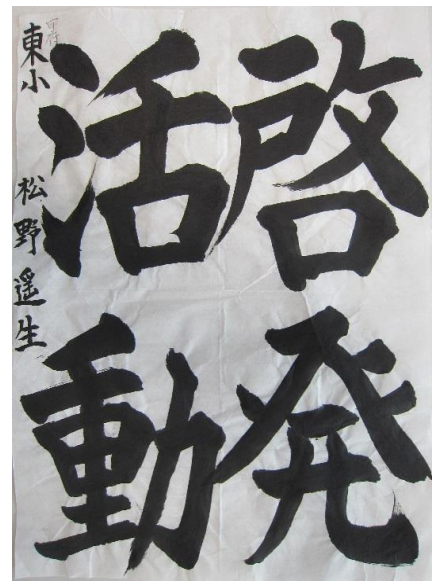 啓発
活動
東小 松野遥生